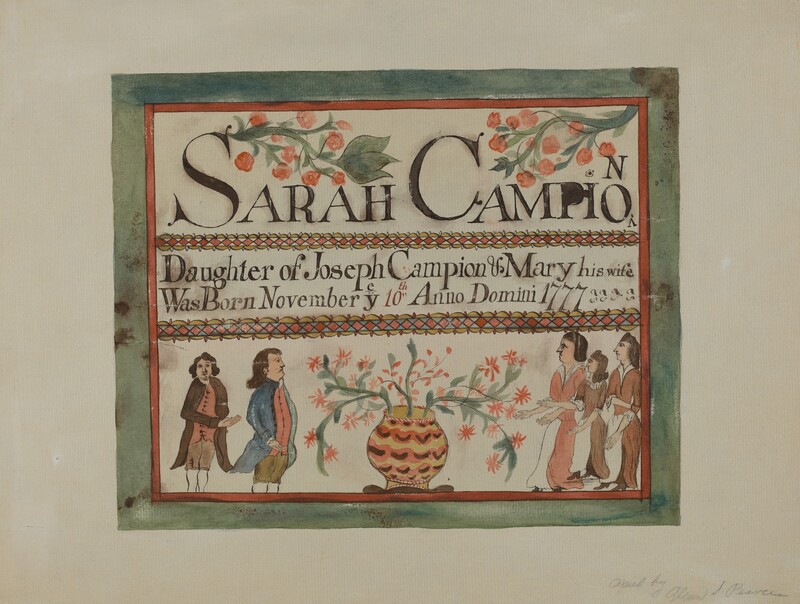 SARAH CAMPION
Daughter of Joseph Campion & Mary his wife
Was Born November yᵉ 10ᵗʰ Anno Domini 1777
by